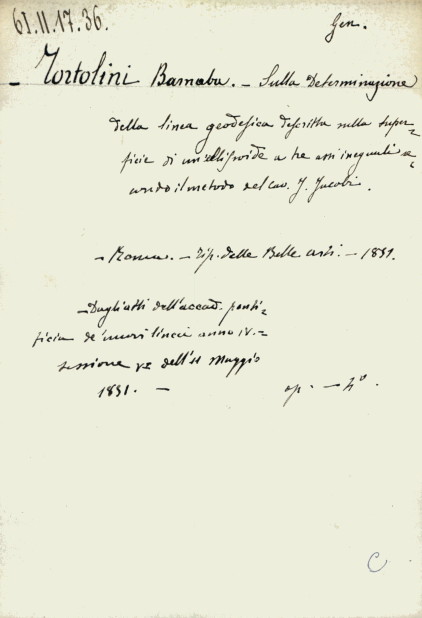 61.II.17.36.
Gen.
— Tortolini Barnaba. — Sulla Determinazione
della linea geodesica descritta sulla super=
ficie di un'ellissoide a tre assi ineguali se=
condo il metodo del cav. J. Jacobi.
— Roma. — Tip. delle Belle arti. — 1851.
— Dagli atti dell'accad. ponti=
ficia de' nuovi lincei anno IV. =
sessione Va dell'11 Maggio
1851. —
op. — 4°.
C